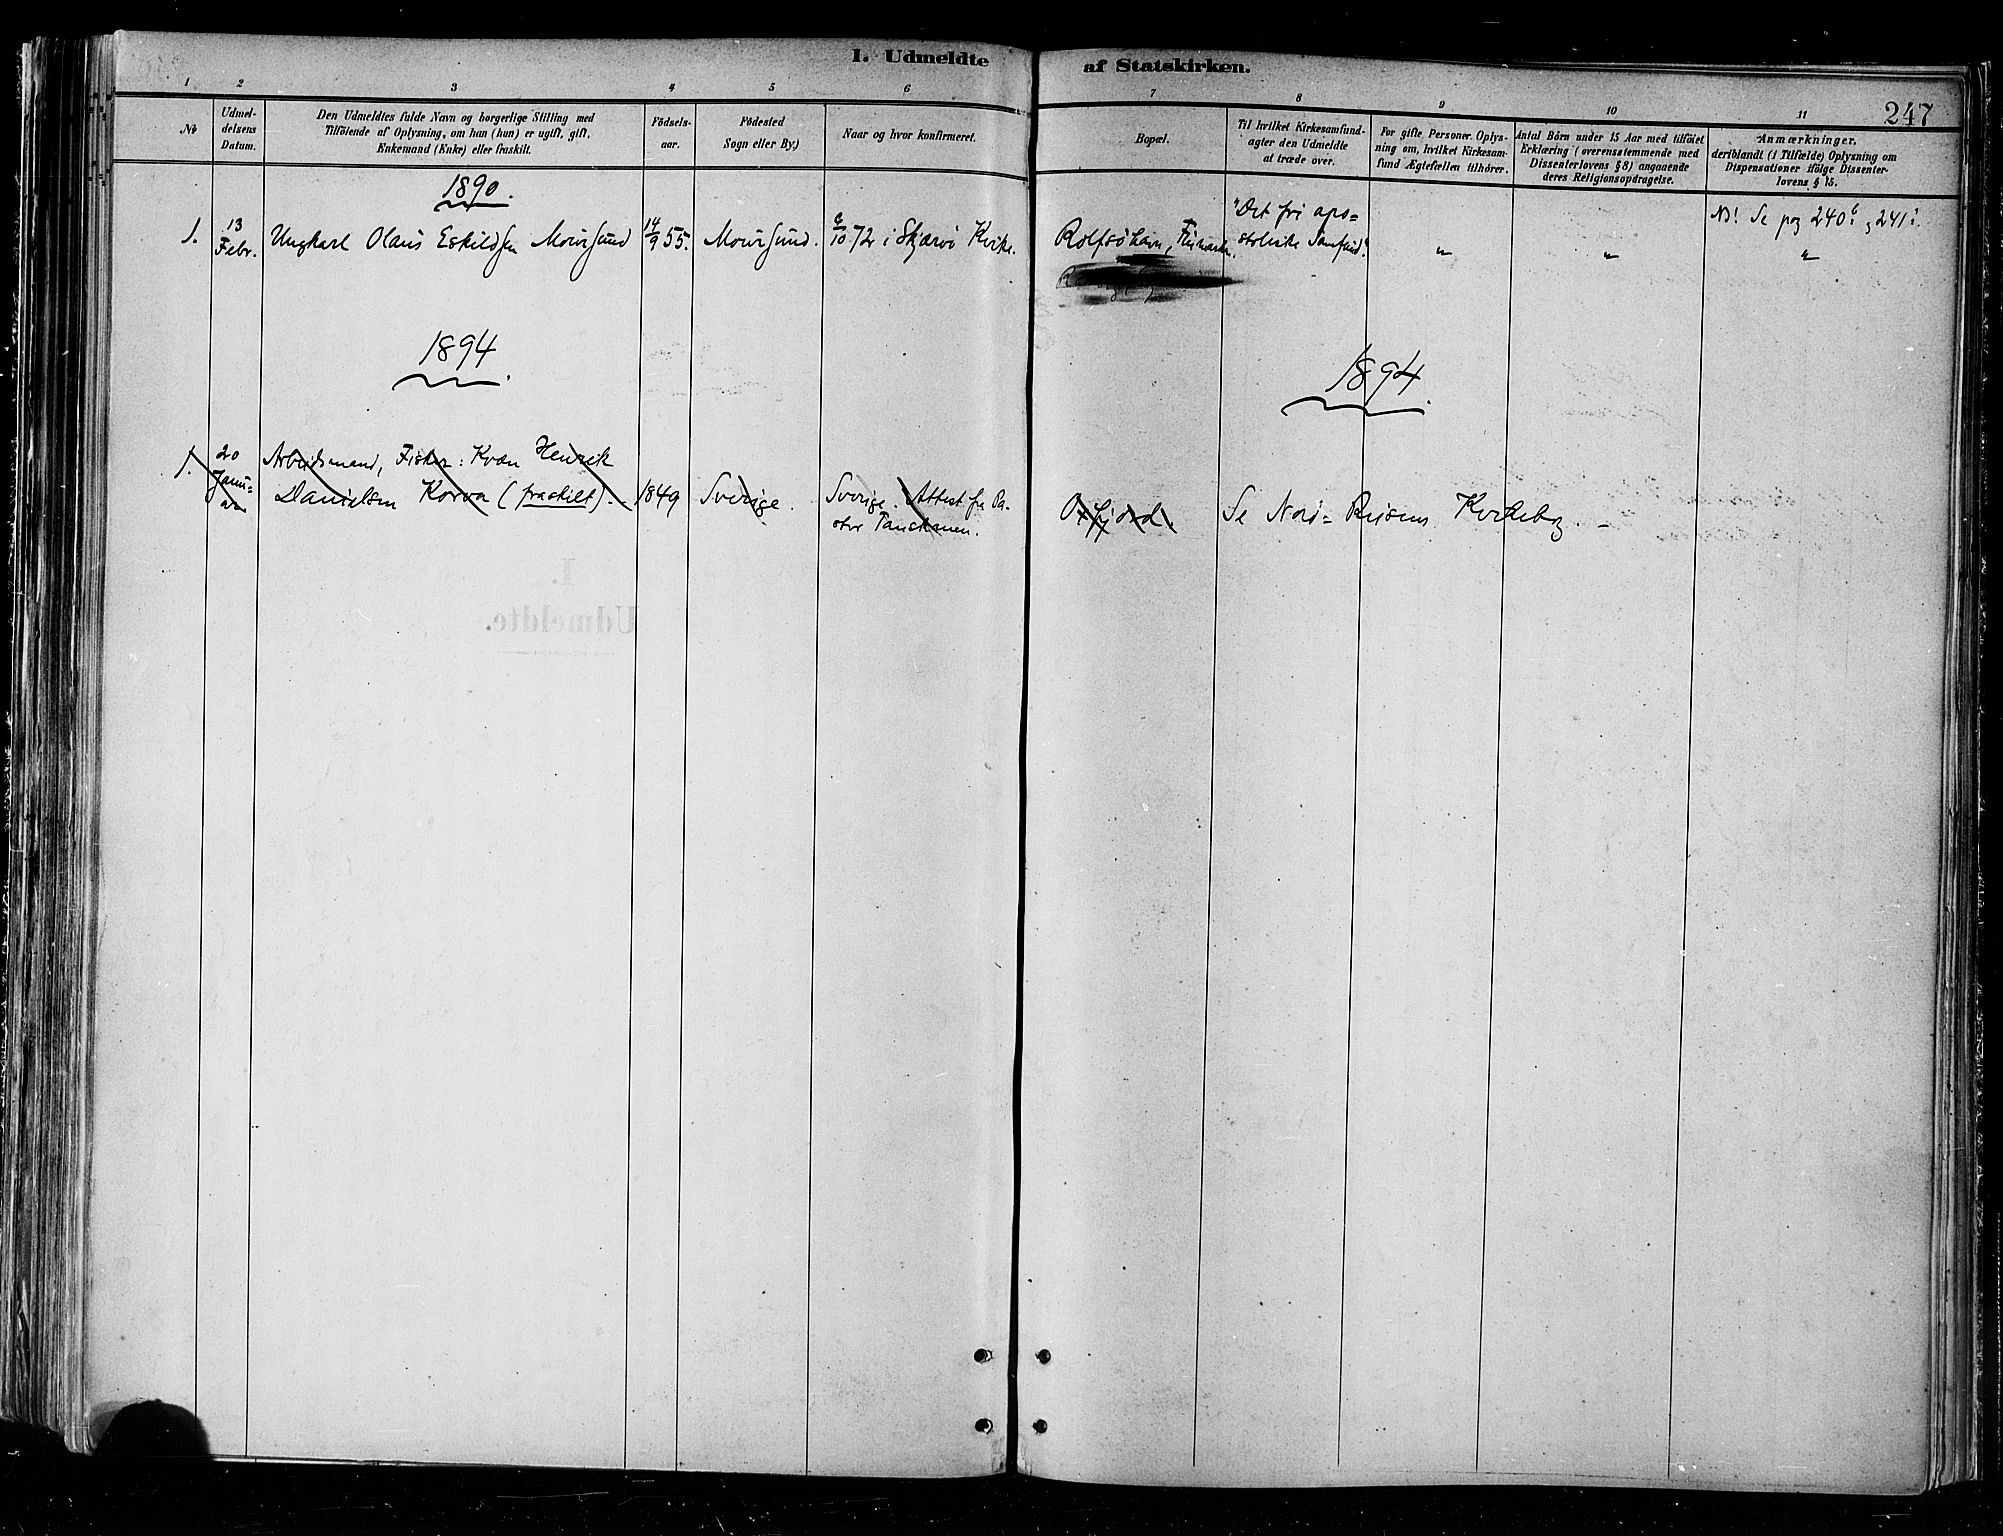 I. Udmeldte af Statskirken.
247
1 2 3 4 5 6 7 8 9 10 11
No
Udmel-
delsens
Datum.
Den Udmeldtes fulde Navn og borgerlige Stilling med
Tilföiende af Oplysning, om han (hun) er ugift, gift,
Enkemand (Enke) eller fraskilt.
Födsels-
aar.
Födested
Sogn eller By,)
Naar og hvor konfirmeret.
Bopæl.
Til hvilket Kirkesamfund-
agter den Udmeldte
at træde over.
For gifte Personer. Oplys-
ning om, hvilket Kirkesam-
fund Ægtefællen tilhörer.
Antal Börn under 15 Aar med tilföiet
Erklæring (overensstemmende med
Dissenterlovens § 8) angaaende
deres Religionsopdragelse.
Anmærkninger.
deriblandt (i Tilfælde) Oplysning om
Dispensationer ifölge Dissenter-
lovens § 15.
1890.
1.
13
Febr.
Ungkarl Olaus Eskildsen Moursund
14/9 55.
Moursund.
6/10 72 i Skjærvö Kirke.
Rolfsöhavn, Finmarken.
"Det fri apo=
stoliske Samfund".
"
"
NB! Se pag 240 b, 241 a.
"
1894
1894.
1.
20
Janu=
ar
Arbeidsmand, Fisker: Kvæn Henrik
Danielsen Korva (fraskilt).
1849
Sverige.
Sverige. Attest fra Pa-
stor
Oxfjord.
Se Nord=Reisens Kirkebog.
I.
Udmeldte.